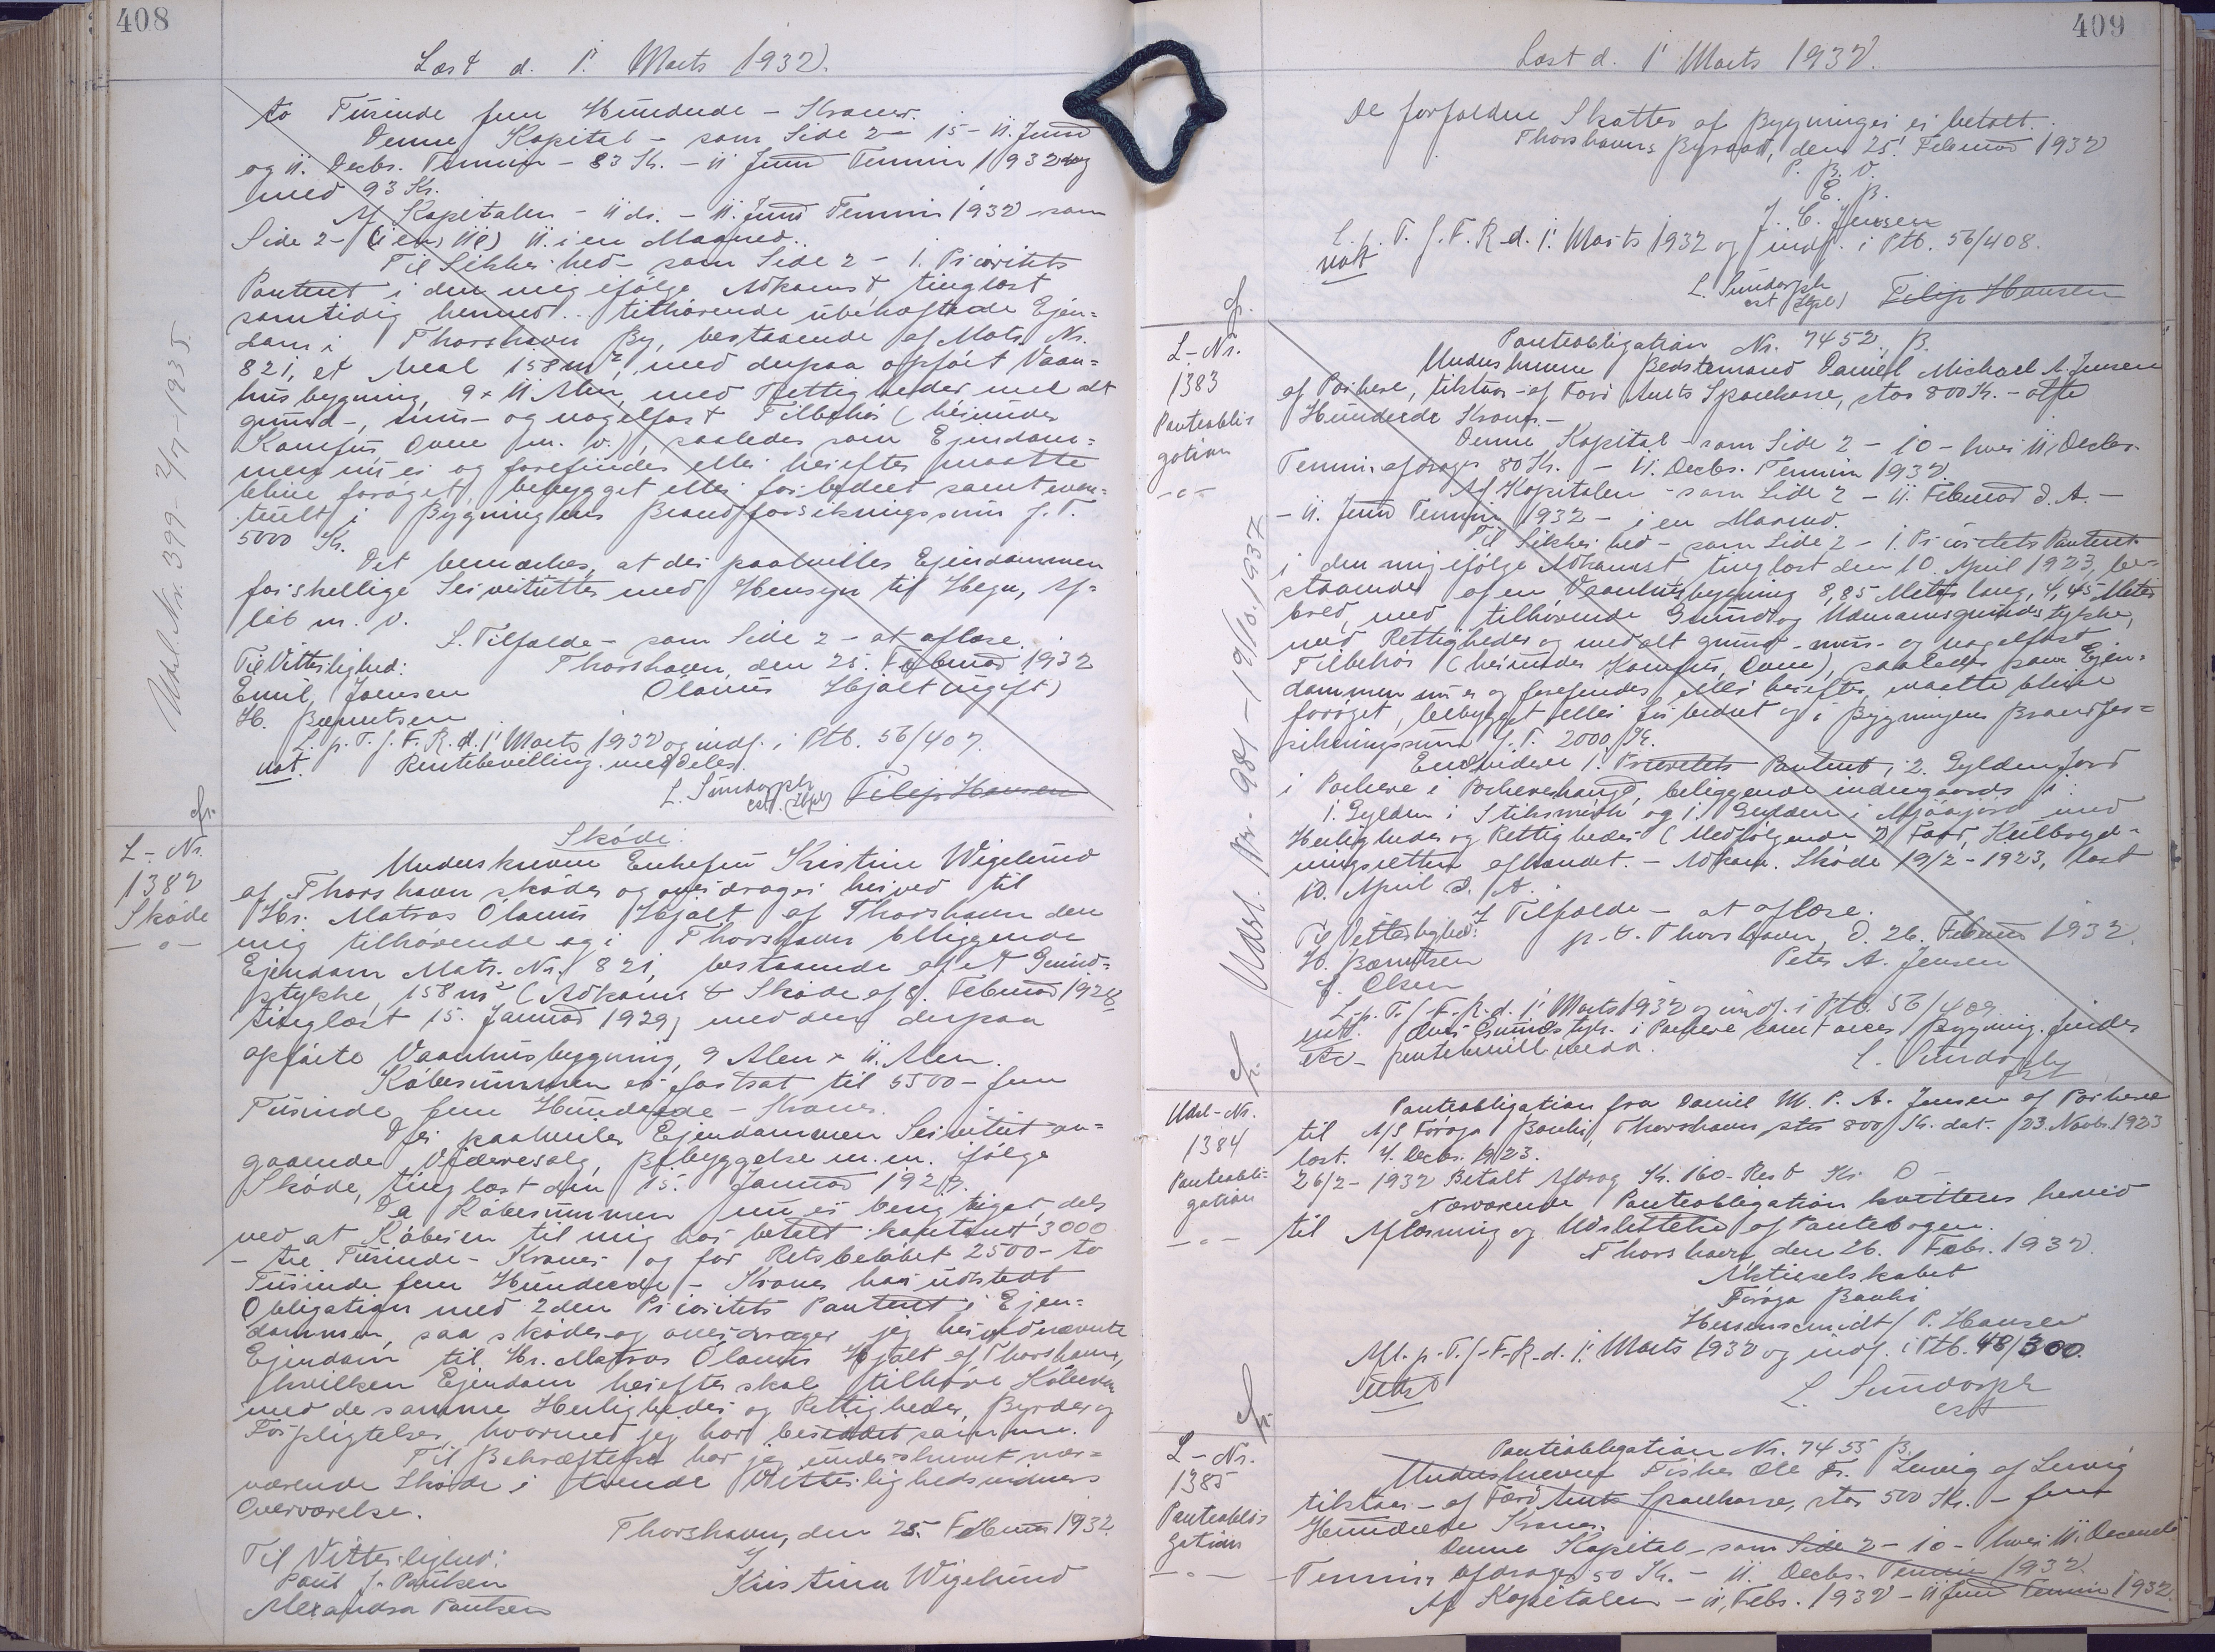 408
Læst d. 1' Marts 1932.
to Tusinde fem Hundrede - Kroner.
Denne Kapital - som Side 2 - 15 - 11. Juni
og 11. Decbr. Termin - 83 Kr. - 11 Juni Termin 1932
med 93 Kr.
Af Kapitalen - 11 ds. - 11. Juni Termin 1932 som
Side 2 - 11. i en Maaned.
Til Sikkerhed som Side 2 - 1. Prioritets
Panteret i den mig ifølge Adkomst tinglæst
samtidig hermed. tilhørende übehæftede Ejen=
dom i Thorshavn By, bestaaende af Matr. Nr.
821, et Areal 158 m², med derpaa opført Vaan=
husbygning, 9 x 11 Alen, med Rettigheder med alt
grund-, mur- og nagelfast Tilbehør (herunder
Komfur Ovne m. v.), saaledes som Ejendom=
men nu er og forefindes eller herefter maatte
blive forøget, bebygget eller forbedret samt even=
tuelt i Bygningens Brandforsikringssum f. T.
5000 Kr.
Det bemærkes, at der paahviler Ejendommen
forskellige Servitutter med Hensyn til Hegn, Af=
løb m. v.
I Tilfælde - som Side 2 - at aflæse.
Til Vitterlighed: Thorshavn, den 25. Februar 1932
Emil Joensen Olavus Hjalt (ugift)
H. Bærentsen
L. p. T. f. F. R. d. 1' Marts 1932 og indf. i Ptb. 56/407.
not. Rentebevilling meddeles.
L. Sundorph
cst. Filip Hansen
Udsl. Nr. 399 - 2/7 - 1935.
L-Nr.
1382
Skøde
Skøde.
Underskrevne Enkefru Kristine Wigelund
af Thorshavn skøder og overdrager herved til
Hr. Matras Olavus Hjalt af Thorshavn den
mig tilhørende og i Thorshavn beliggende
Ejendom Matr. Nr. 821, bestaaende af et Grund=
stykke, 158 m² (Adkomst Skøde af 8. Februar 1928
tinglæst 15. Januar 1929) med den derpaa
opførte Vaanhusbygning, 9 Alen x 11. Alen.
Købesummen er fastsat til 5500 - fem
Tusinde fem Hundrede - Kroner.
Der paahviler Ejendommen Servitut an=
gaaende Videresalg, Bebyggelse m.m. ifølge
Skøde, tinglæst den 15. Januar 1929.
Da Købesummen nu er berigtiget, dels
ved at Køberen til mig har betalt kontant 3000
- tre Tusinde - Kroner og for Restbeløbet 2500 - to
Tusinde fem Hundrede - Kroner har udstedt
Obligation med 2den Prioritets Panteret i Ejen=
dommen, saa skøder og overdrager jeg herved nævnte
Ejendom til Hr. Matras Olavus Hjalt af Thorshavn,
hvilken Ejendom herefter skal tilhøre Køberen
med de samme Herligheder og Rettigheder, Byrder og
Forpligtelser, hvormed jeg har besiddet samme.
Til Bekræftelse har jeg underskrevet nær=
værende Skøde i tvende Vitterlighedsvidners
Overværelse.
Thorshavn, den 25. Februar 1932.
Til Vitterlighed:
Poul J. Poulsen Kristina Wigelund
Alexandra Poulsen
409
Læst d. 1' Marts 1932.
De forfaldne Skatter af Bygninger er betalt.
Thorshavns Byraad, den 25. Februar 1932
P. B. V.
E. B.
J. C. Jensen
L. p. T. f. F. R. d. 1' Marts 1932 og indf. i Ptb. 56/408.
not
L. Sundorph
cst Filip Hansen
L-Nr.
1383
Panteobli=
gation
Panteobligation Nr. 7452 B.
Underskrevne Bedstemand Daniel Michael A. Jensen
af Porkere, tilstaar - af Færø Amts Sparekasse, stor 800 Kr. - otte
Hundrede Kroner. -
Denne Kapital - som Side 2 - 10 - hver 11. Decbr.
Termin afdrages 80 Kr. - 11. Decbr. Termin 1932.
Af Kapitalen - som Side 2 - 11. Februar d. A. -
- 11. Juni Termin 1932 - i en Maaned.
Til Sikkerhed - som Side 2 - 1. Prioritets Panteret
i den mig ifølge Adkomst tinglæst den 10. April 1923, be=
staaende af en Vaanhusbygning 8,85 Meter lang, 4,45 Meter
bred, med tilhørende Grund og Udmarksgrundstykke,
med Rettigheder og med alt grund-mur- og nagelfast
Tilbehør (herunder Komfur, Ovne), saaledes som Ejen=
dommen nu er og forefindes eller herefter maatte blive
forøget, bebygget eller forbedret og i Bygningens Brandfor=
sikringssum f. T. 2000 Kr.
Endvidere 1. Prioritets Panteret i 2. Gylden Jord
i Porkere i Porkerehauge, beliggende indengaards
1. Gylden i Stiksmørk og 1. Gylden i med
Herligheder og Rettigheder (Medfølgende 2 Faar,
afhændet. - Adkom. Skøde 19/2 - 1923, læst
10. April d. A.
I Tilfælde - at aflæse.
Til Vitterlighed: p. t. Thorshavn, d. 26. Februar 1932.
H. Bærentsen Peter A. Jensen
J. Olsen
L. p. T. f. F. R. d. 1' Marts 1932 og indf. i Ptb. 56/409
L. Sundorph
Udsl. Nr. 901 - 19/10. 1937
Udsl-Nr.
1384
Panteobli=
gation
Panteobligation fra Daniel M. P. A. Jensen af Porkere
til A/S Føroya Banki, Thorshavn stor 800 Kr. dat. 23. Novbr. 1923
læst. 4. Decbr. 1923.
26/2 - 1932 Betalt Afdrag Kr. 160 - Rest Kr. 0 -
Nærværende Panteobligation kvitteres herved
til Aflæsning og Udslettelse af Pantebogen.
Thorshavn, den 26. Febr. 1932.
Aktieselskabet
Føroya Banki
Heinenschmidt / P. Hansen
Afl. p. T. f. F. R. d. 1' Marts 1932 og indf. i Ptb. 48/300.
Udsl
L. Sundorph
cst
L-Nr.
1385
Panteobli=
gation
Panteobligation Nr. 7455 B.
Underskrevne Fisker Ole Fr. Leivig af Leivig
tilstaar - af Færø Amts Sparekasse, stor 500 Kr. - fem
Hundrede Kroner.
Denne Kapital - som Side 2 - 10 - hver 11. Decembr
Termin afdrages 50 Kr. - 11. Decbr. Termin 1932.
Af Kapitalen - 11. Febr. 1932 - 11 Juni Termin 1932.